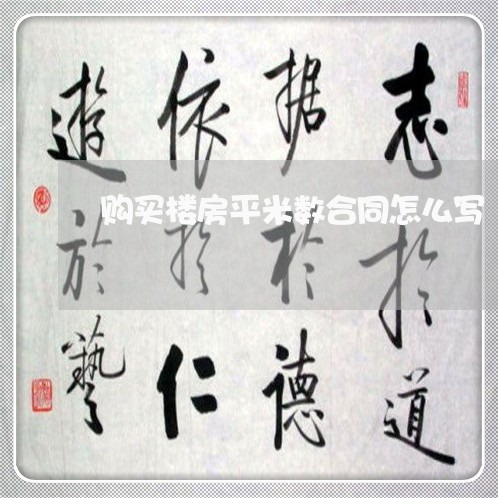 志於道
据於德
依於仁
遊於藝
购买楼房平米数合同怎么写